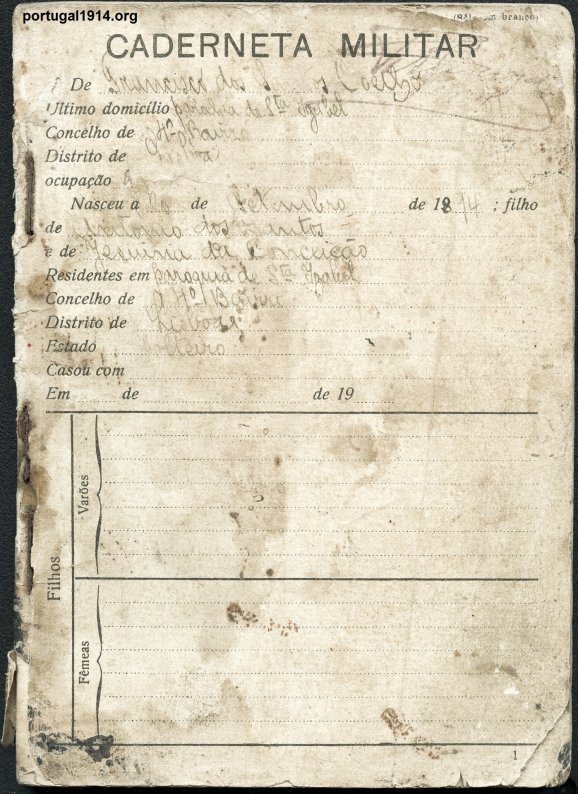 portugal1914.org
(Sala em branco)
CADERNETA MILITAR
De Francisco dos Coelho
Ultimo domicílio parochia de Sta Izabel
Concelho de 4º Bairro
Distrito de
ocupação
Nasceu a 20 de Setembro de 1894; filho
de Antonio dos Santos
e de Jesuina da Conceição
Residentes em paroquia de Sta Izabel
Concelho de 4º Bairro
Distrito de Lisboa
Estado solteiro
Casou com
Em de de 19
Filhos
Varões
Fêmeas
1